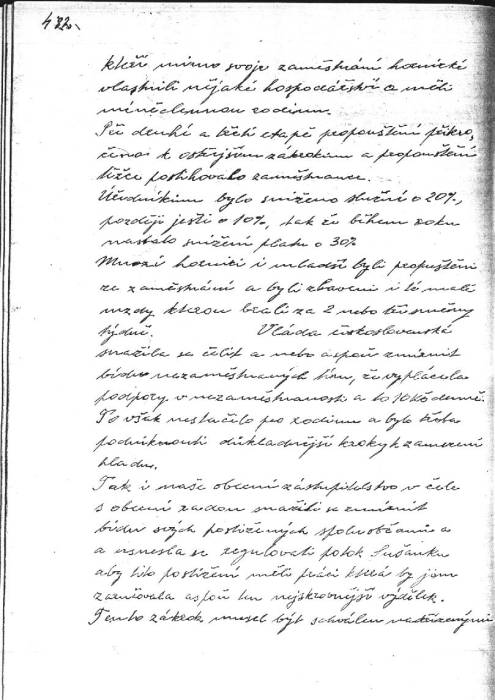 432.
kteří mimo svoje zaměstnání hornické
vlastnili nějaké hospodářství a měli
méněčlennou rodinu.
Při druhé a třetí etapě propouštění přikro,
čeno k ostřejším zákrokům a propouštění
těžce postihovalo zaměstnance.
Úředníkům bylo sníženo služné o 20%,
později ještě o 10%, tak že během roku
nastalo snížení platu o 30%
Mnozí horníci i mladší byli propuštěni
ze zaměstnání a byli zbaveni i té malé
mzdy kterou brali za 2 nebo tři směny
týdně. Vláda československá
snažila se čeliť a nebo aspoň zmírnit
bídu nezaměstnaných tím, že vyplácela
podpory v nezaměstnanosti a to 10 Kč denně.
To však nestačilo pro rodinu a bylo třeba
podniknouti důkladnější kroky k zamezení
hladu.
Tak i naše obecní zastupitelstvo v čele
s obecní radou snažili se zmírnit
bídu svých postižených spoluobčanů a
a usnesla se regulovati potok Sušanku
aby tito postižení měli práci která by jim
zaručovala aspoň ten nejskrovnější výdělek.
Tento zákrok musel být schválen nadřízenými